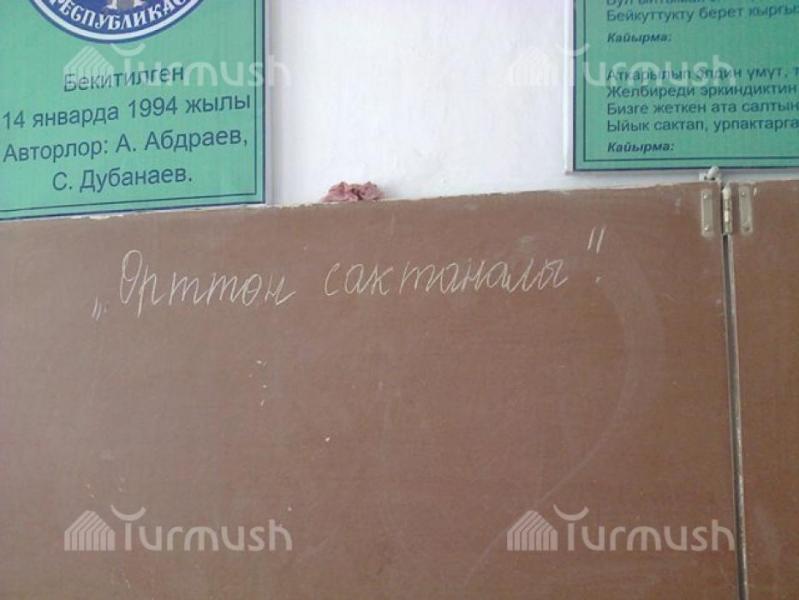 РЕСПУБЛИКАС
Бекитилген
14 январда 1994 жылы
Авторлор: А. Абдраев,
С. Дубанаев.
Бейкуттукту берет кыргыз
Кайырма:
Аткарылып элдин үмүт, т
Желбиреди эркиндиктин
Бизге жеткен ата салтын
Ыйык сактап, урпактарга
Кайырма:
„Өрттөн сактаналы”.
Turmush
Turmush
Turmush
Turmush
Turmush
Turmush